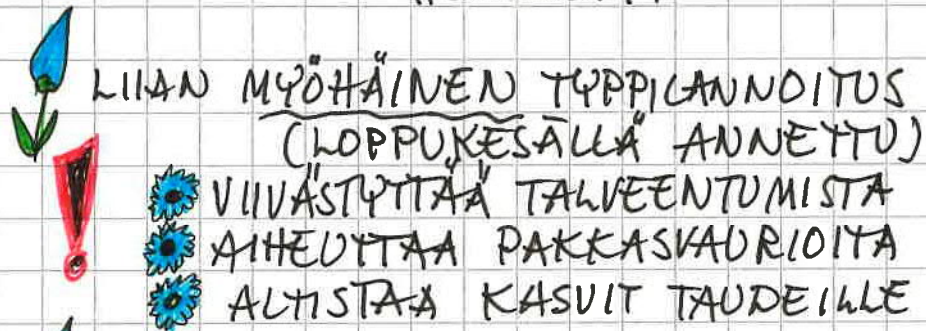 LIIAN MYÖHÄINEN TYPPILANNOITUS
(LOPPUKESÄLLÄ ANNETTU)
VIIVÄSTYTTÄÄ TALVEENTUMISTA
AIHEUTTAA PAKKASVAURIOITA
ALTISTAA KASVIT TAUDEILLE